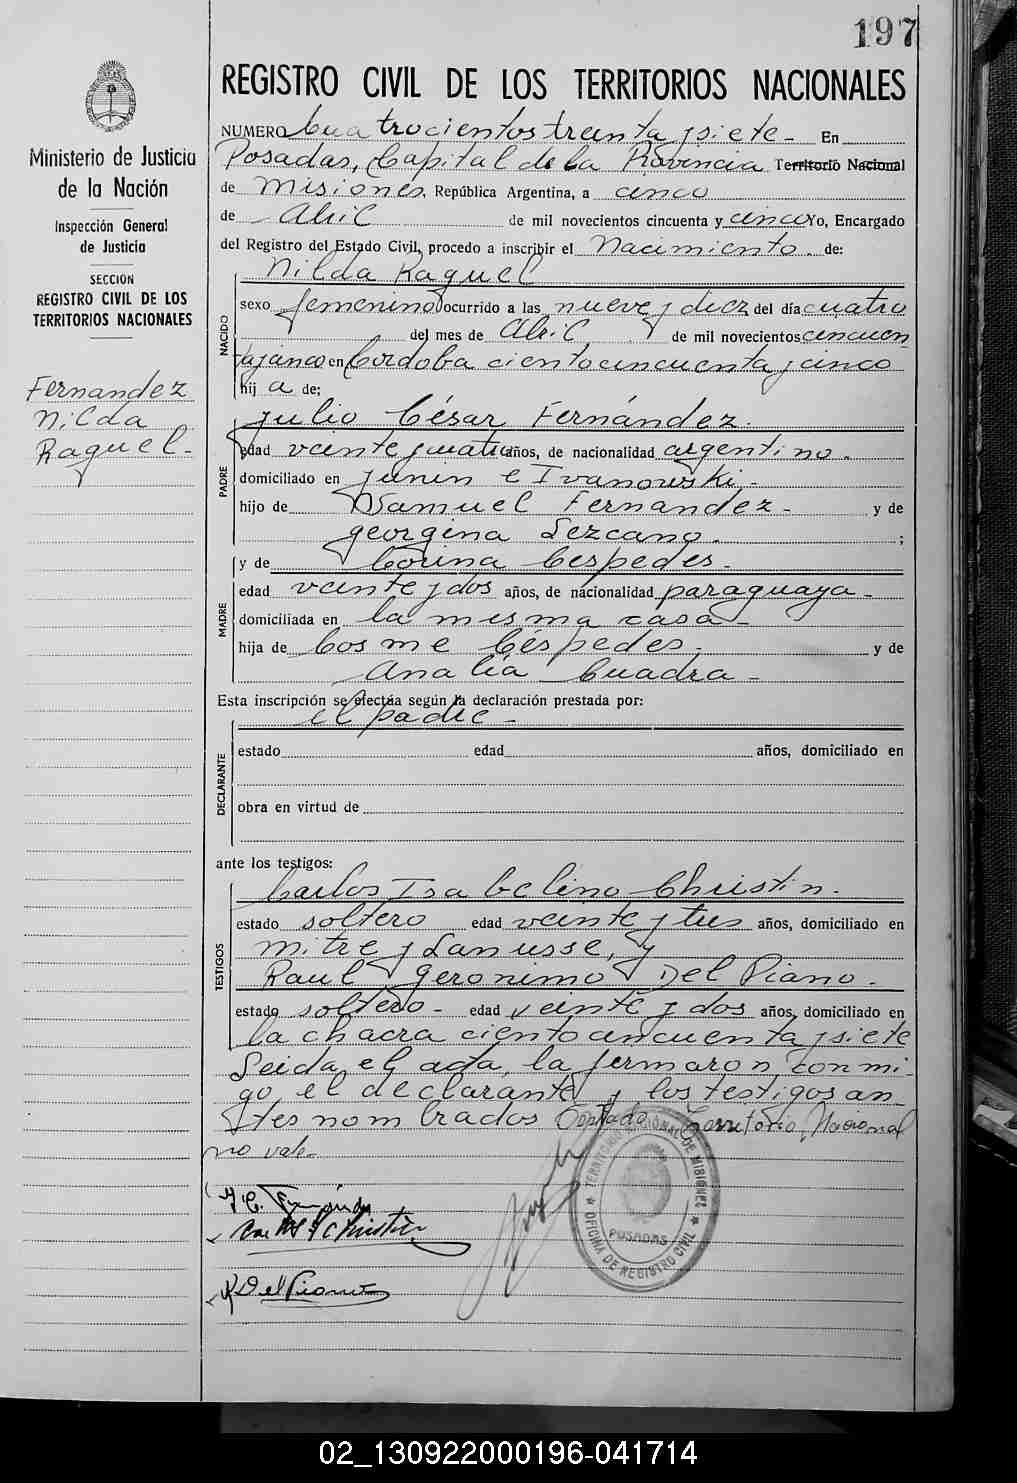 197
REGISTRO CIVIL DE LOS TERRITORIOS NACIONALES
Ministerio de Justicia
de la Nación
Inspección General
de Justicia
SECCIÓN
REGISTRO CIVIL DE LOS
TERRITORIOS NACIONALES
Fernandez
Nilda
Raquel.-
NUMERO Cuatrocientos treinta y siete- En
Posadas, Capital de la Provincia Territorio Nacional
de Misiones, República Argentina, a cinco
de Abril de mil novecientos cincuenta y cinco Yo, Encargado
del Registro del Estado Civil, procedo a inscribir el Nacimiento. de:
NACIDO
Nilda Raquel
sexo femenino ocurrido a las nueve y diez del día cuatro
del mes de Abril de mil novecientos cincuen
ta y cinco en Cordoba ciento cincuenta y cinco
hij a de;
PADRE
Julio César Fernández.
edad veinte y cuatro años, de nacionalidad argentino.
domiciliado en Junin e Ivanowski,-
hijo de Samuel Fernandez- y de
georgina Lezcano. ;
y de Corina Cespedes.-
MADRE
edad veinte y dos años, de nacionalidad paraguaya-
domiciliada en la misma casa-
hija de Cosme Céspedes, y de
Analia Cuadra-
Esta inscripción se efectúa según la declaración prestada por:
el padre-
DECLARANTE
estado edad años, domiciliado en
obra en virtud de
ante los testigos:
TESTIGOS
Carlos Isabelino Christin.
estado soltero edad veinte y tres años, domiciliado en
mitre y Lanusse, y
Raul Geronimo Del Piano.
estado soltero- edad veinte y dos años, domiciliado en
la chacra ciento cincuenta y siete
Leida el acta, la firmaron conmi-
go el declarante y los testigos an
tes nombrados Territorio Nacional
no vale-
J C. Fernández
Carlos I Christin
R Del Piano
TERRITORIO NACIONAL DE MISIONES
POSADAS
OFICINA DE REGISTRO CIVIL
02_130922000196-041714